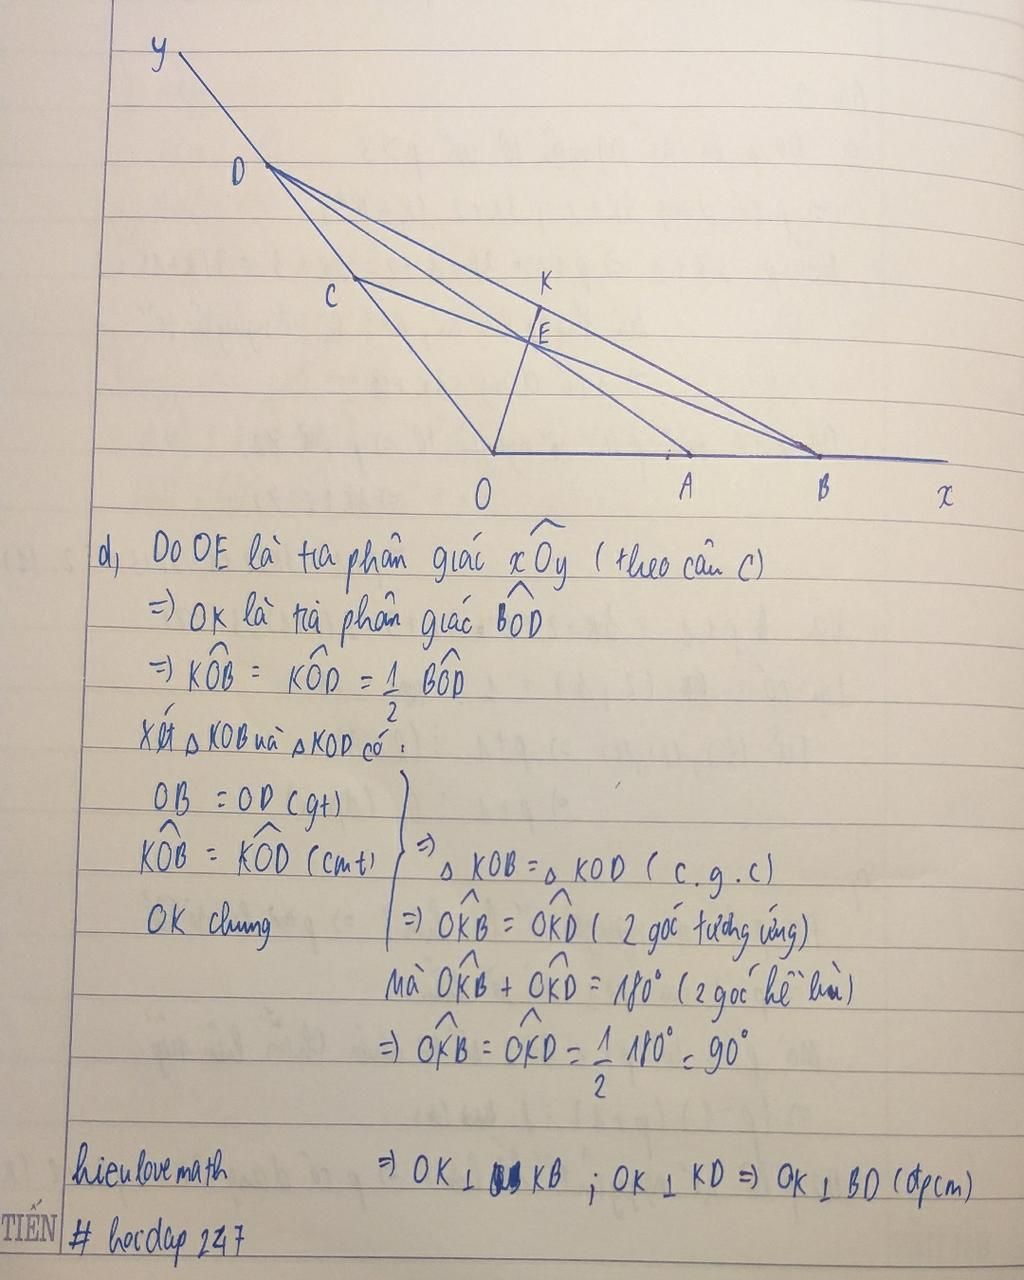 y
D
C
K
E
O
A
B
x
d, Do OE là tia phân giác xÔy (theo câu c)
=> OK là tia phân giác BÔD
=> KÔB = KÔD = 1/2 BÔD
Xét △KOB và △KOD có:
OB = OD (gt)
KÔB = KÔD (cmt)
OK chung
=> △KOB = △KOD (c.g.c)
=> OK̂B = OK̂D (2 góc tương ứng)
Mà OK̂B + OK̂D = 180° (2 góc kề bù)
=> OK̂B = OK̂D = 1/2 180° = 90°
=> OK ⊥ KB ; OK ⊥ KD => OK ⊥ BD (đpcm)
hieulovemath
# hocdap 247
TIẾN